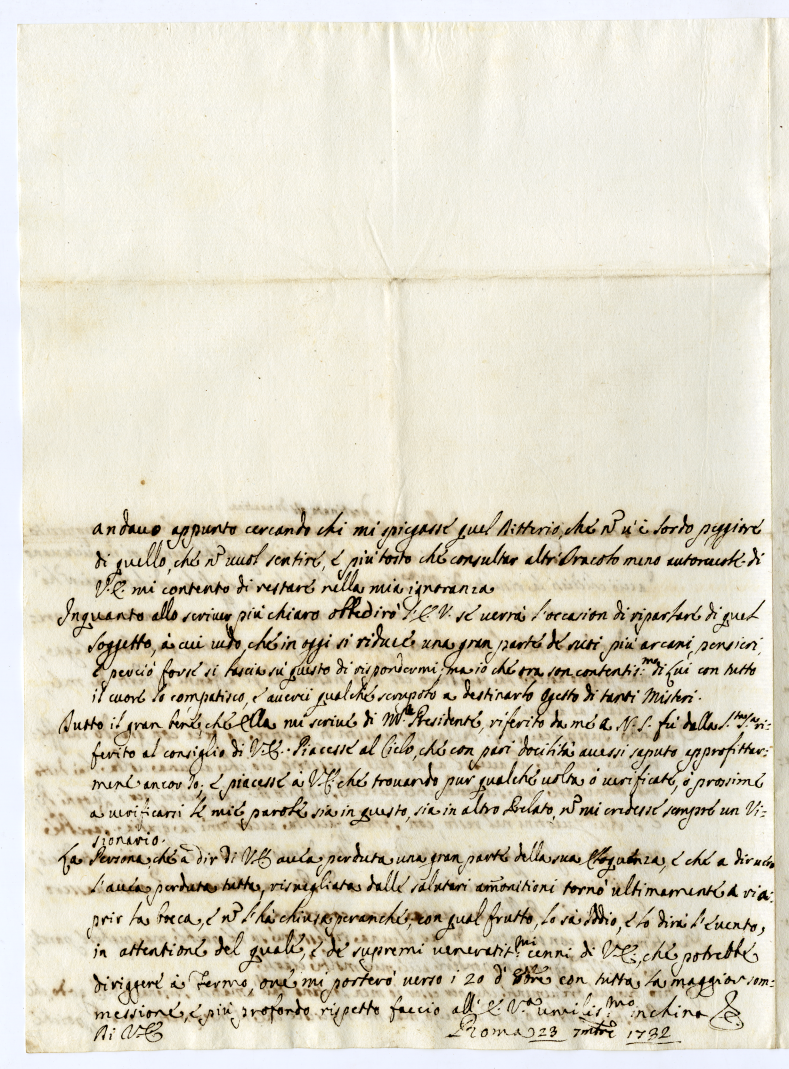 andavo appunto cercando chi mi spiegasse quel Bitterio, che nº v'è sordo peggiore
di quello, che nº vuol sentire, e più tosto che consultar altr'Oracolo meno autorevole di
V.E. mi contento di restare nella mia ignoranza
Inquanto allo scriver più chiaro obbedirò V.E. se verrà l'occasion di riparlare di quel
soggetto, à cui vedo, che in oggi si riduce una gran parte de suoi più arcani pensieri,
e perciò forse si lascia sù questo di rispondermi; ma io che ora son contentis.mo di Lui con tutto
il cuore lo compatisco, e averei qualche scrupolo a destinarlo ogetto di tanti Misterj.
Tutto il gran bene, che Ella mi scrive di Mr Presidente, riferito da me a N.S. fù dalla S.tà S.a ri-
ferito al consiglio di V.E. Piacesse al Cielo, che con pari docilità avessi saputo approfittar-
mene ancor Io; e piacesse à V.E. che trovando pur qualche volta ò verificate, ò prossime
a verificarsi le mie parole sia in questo, sia in altro Prelato, nº mi credesse sempre un Vi-
sionario.
La Persona, che à dir di V.E. avea perduta una gran parte della sua Eloquenza, e che a dir vero
l'avea perduta tutta, risvegliata dalle salutari am̃onitioni tornò ultimamente a ria-
prir la bocca, e nº l'hà chiusa peranche, con qual frutto, lo sà Iddio, e lo dirà l'evento,
in attentione del quale, e de supremi veneratis.mi cenni di V.E., che potrebbe
diriggere à Fermo, ove mi porterò verso i 20 d' 8bre con tutta la maggior som-
messione, e più profondo rispetto faccio all' E. V.a umilis.mo inchino
Di V.E. Roma 23 7mbre 1732